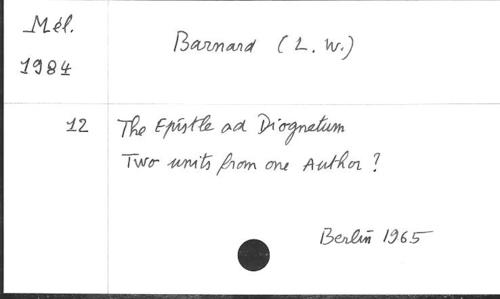 Mél.
1984
Barnard (L. W.)
12
The Epistle ad Diognetum
Two units from one Author ?
Berlin 1965